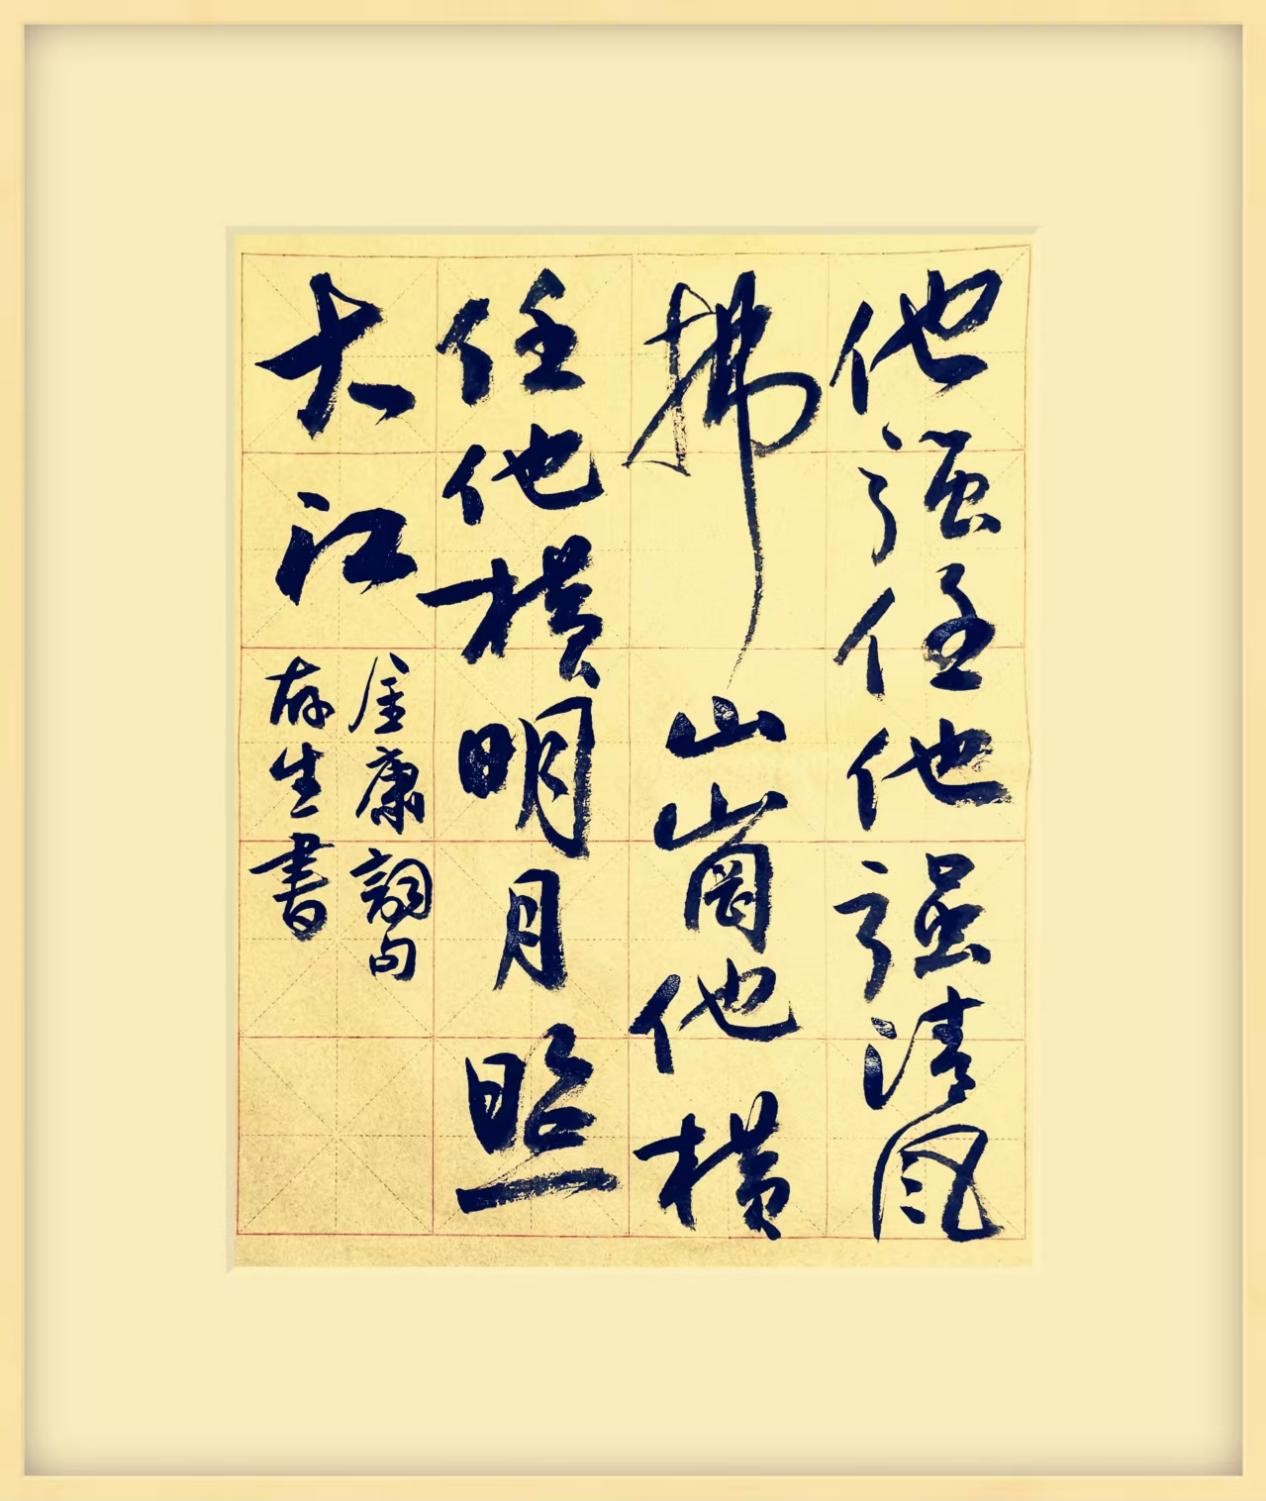 他强任他强清风
拂山岗他横
任他横明月照
大江
金庸词句
存生書